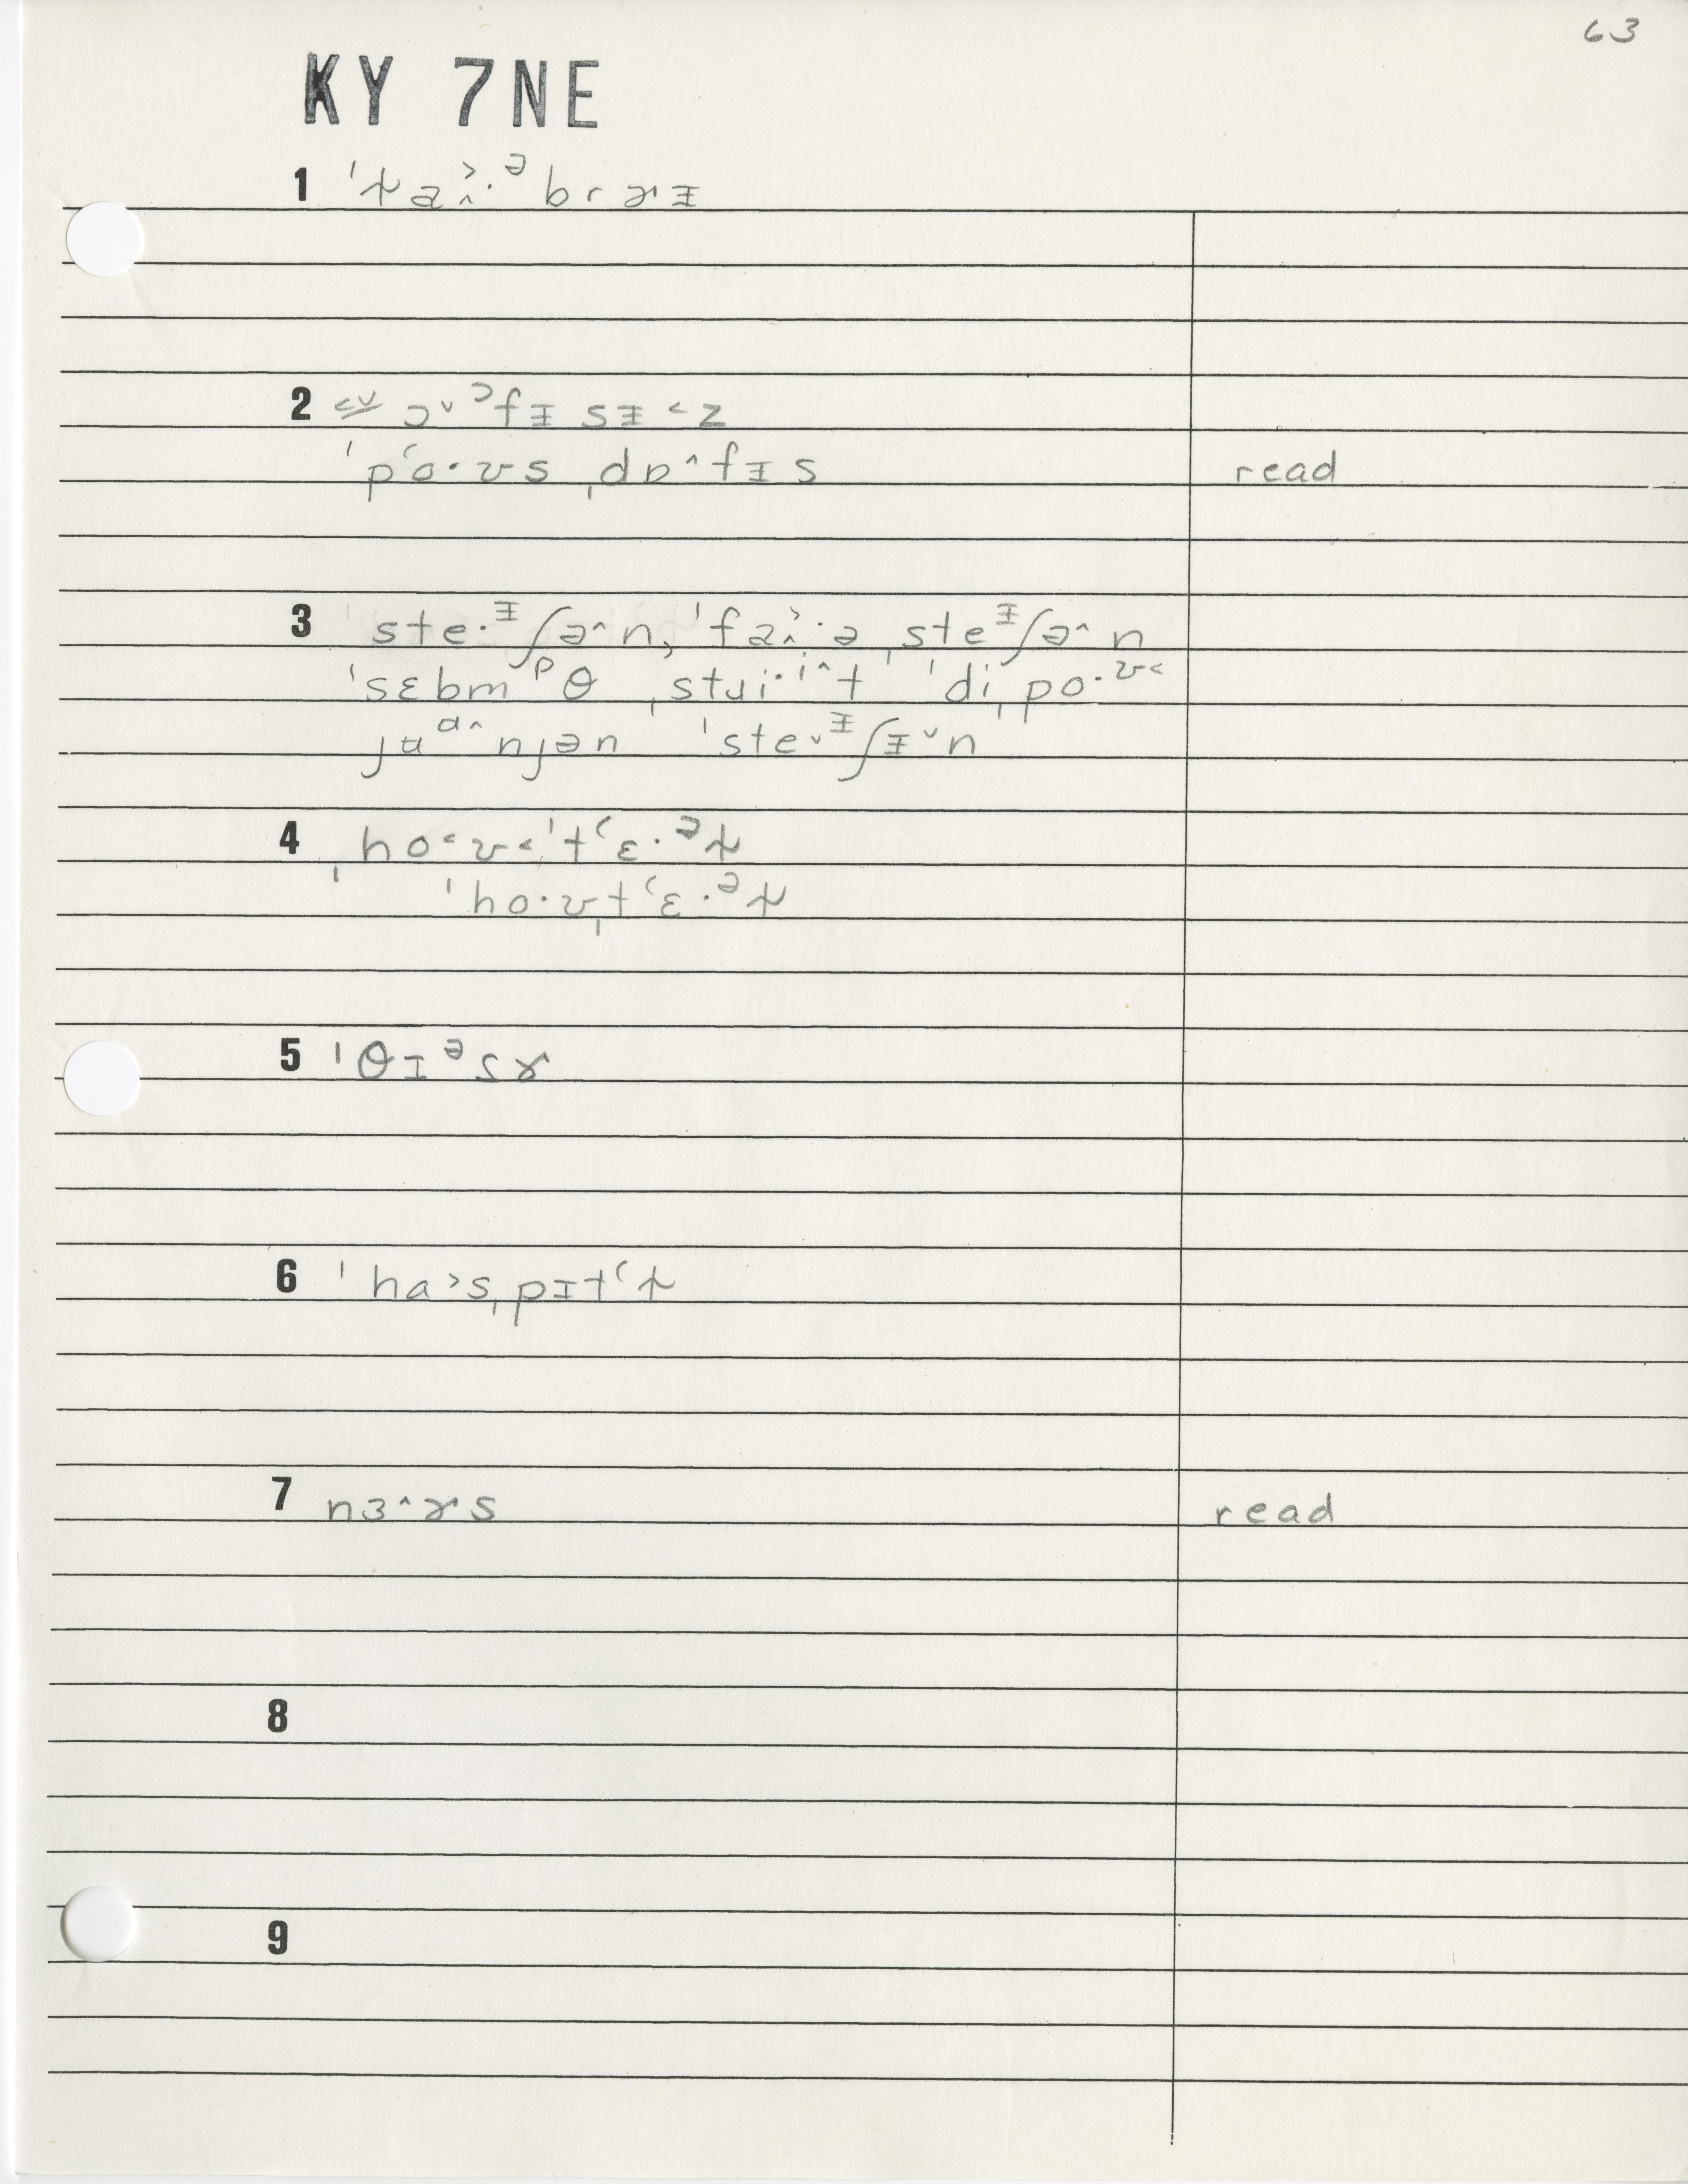 63
KY 7NE
1 ˈɫaɪ˃˄·ᵊbrɚᵻ
2 ɔ˅ᵓfᵻsᵻ˂z
ˈpʻo·ʊsˌdɒ˄fᵻs read
3 ˈste·ᵻʃə˄n, ˈfaɪ˃˄·əˌsteᵻʃə˄n
ˈsɛbmᵖθˌstɹi·ⁱ˄t ˈdiˌpo·ʊ˂
jʉᵅ˄njən ˈste˅ᵻʃᵻ˅n
4 ˌho˂ʊ˂ˈtʻɛ·ᵊɫ
ˈho·ʊˌtʻɛ·ᵊɫ
5 ˈθɪᵊsɤ
6 ˈha˃sˌpɪtʻɫ
7 nɜ˄ɚs read
8
9